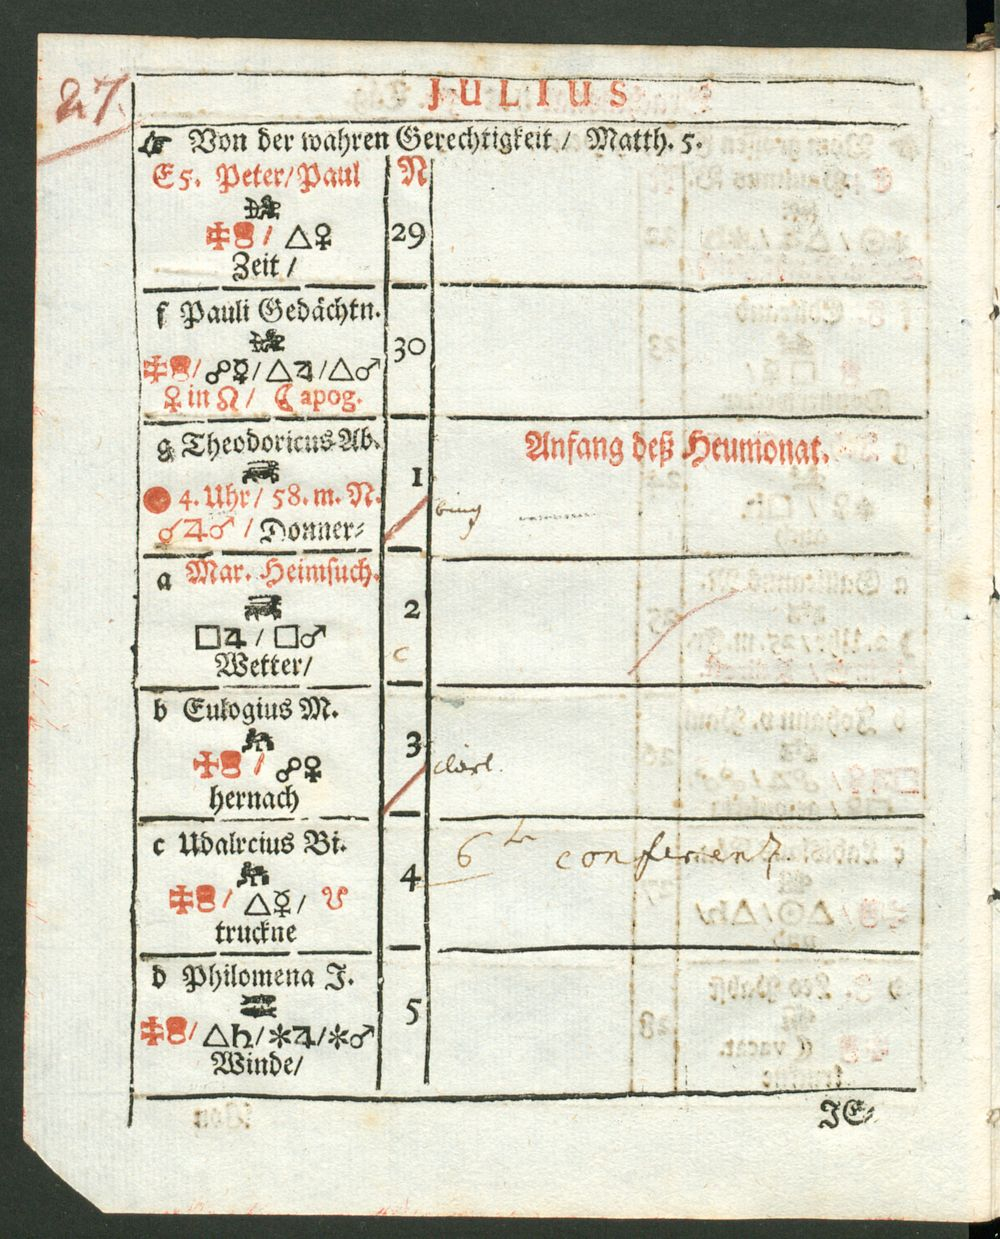 27.
JULIUS
☞ Von der wahren Gerechtigkeit / Matth. 5.
E 5. Peter/Paul N
/ △♀ 29
Zeit /
f Pauli Gedächtn.
/ ☍☿/△♃/△♂ 30
♀ in ♌ / ☾ apog.
g Theodoricus Ab. Anfang deß Heumonat.
● 4. Uhr / 58. m. N. 1
☌♃♂ / Donner⸗
a Mar. Heimsuch.
□♃ / □♂ 2
Wetter/ c
b Eulogius M.
/ ☍♀ 3
hernach
c Udalrcius Bi. 6 conferenz
/ △☿/ ☋ 4
truckne
d Philomena J.
/ △♄/✱♃/✱♂ 5
Winde/
JE⸗